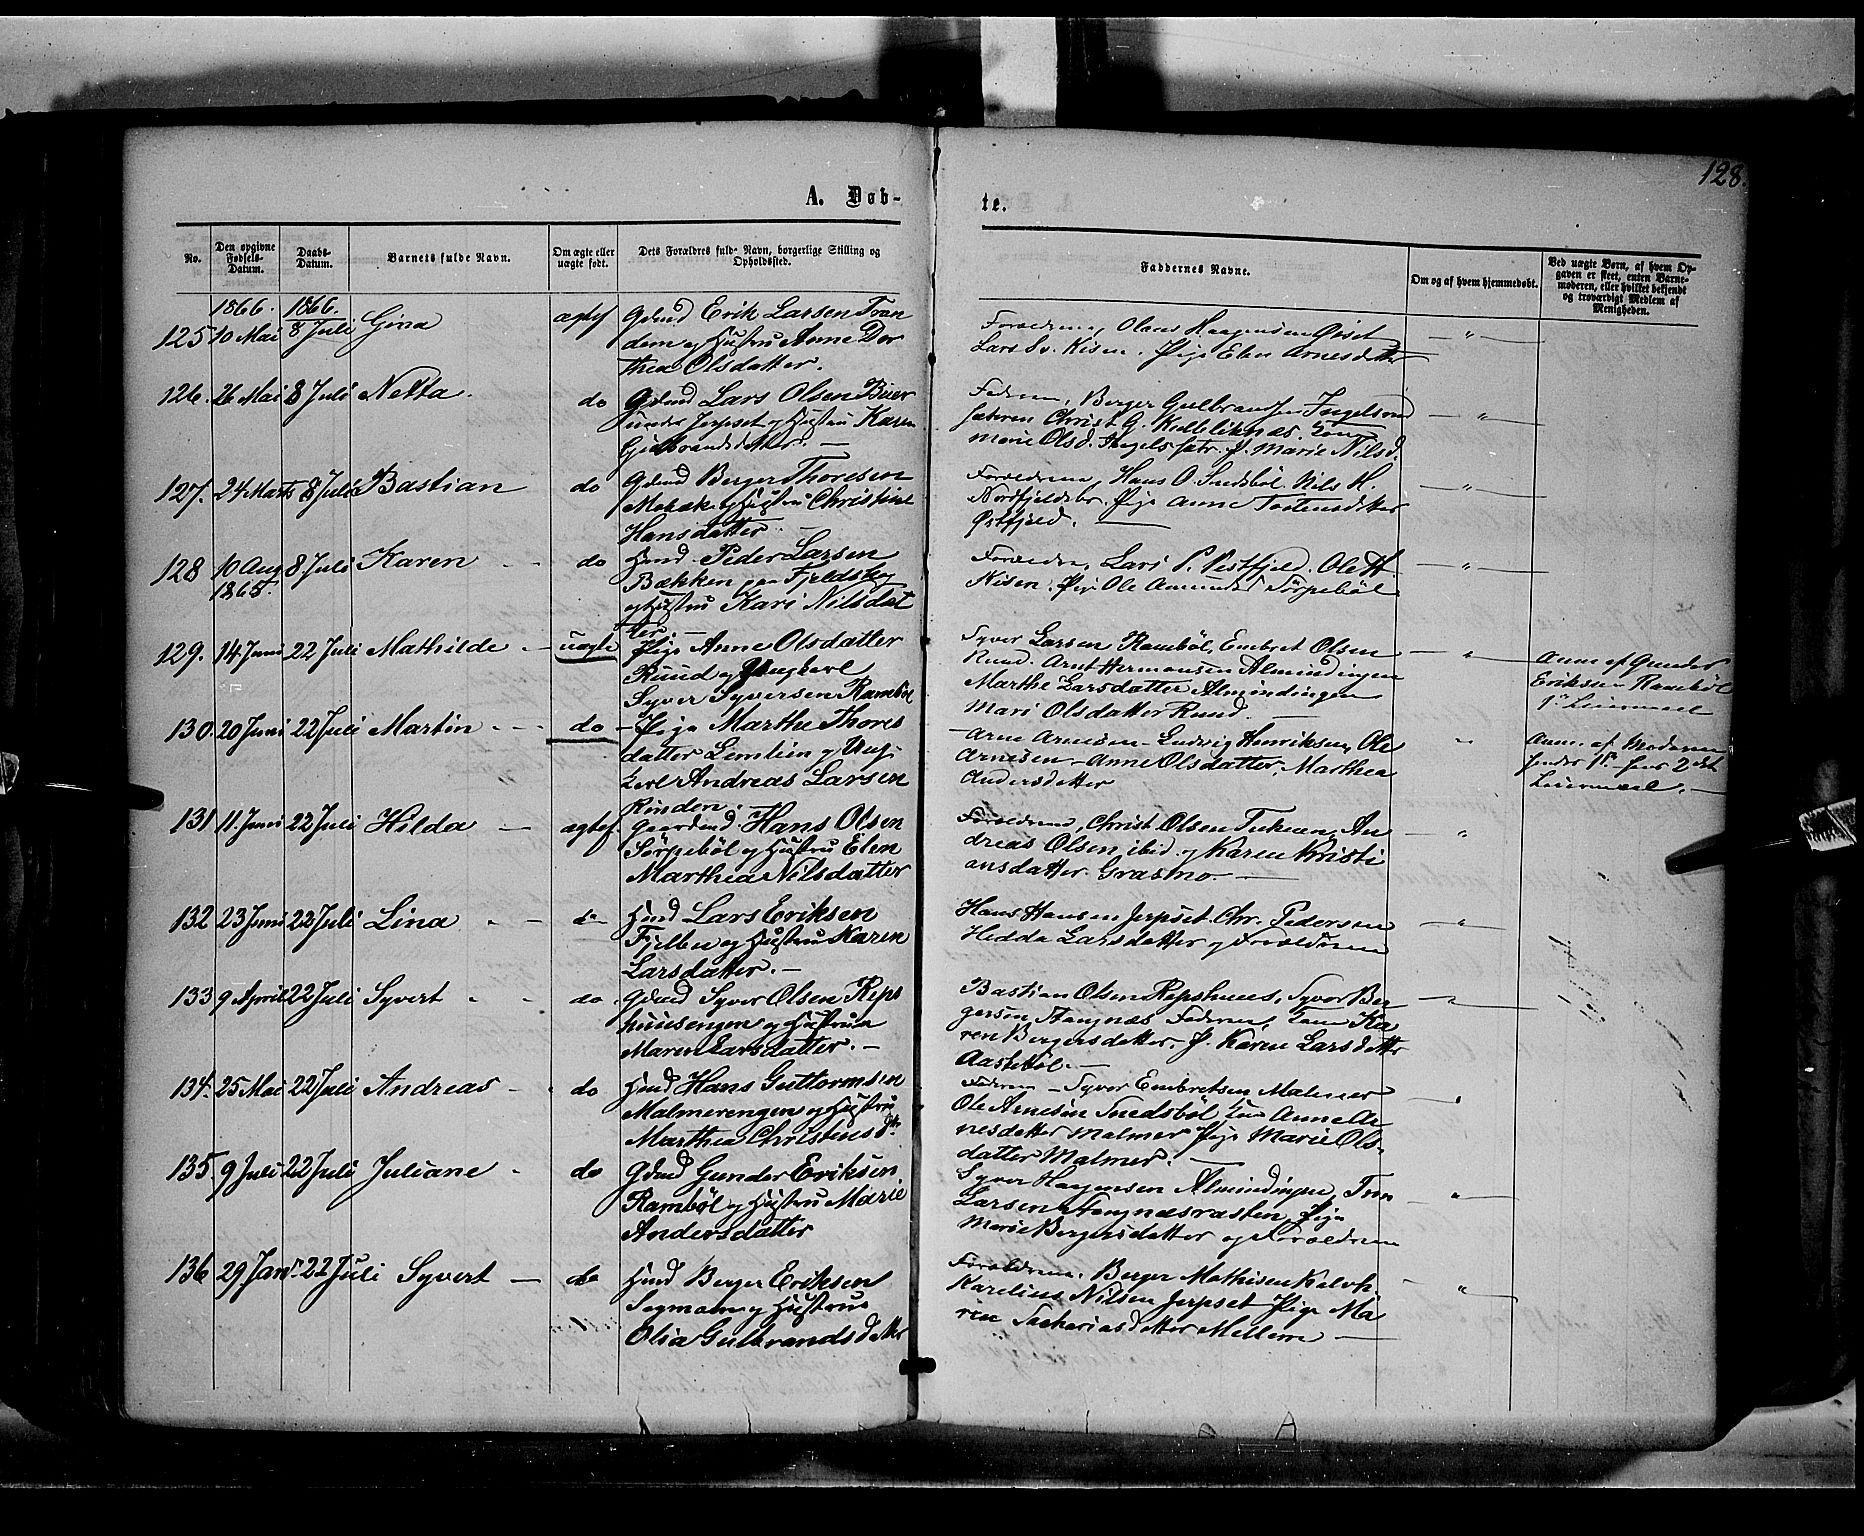 128.
A. Døb-
te.
No.
Den opgivne Fødsels-Datum.
Daabs-Datum.
Barnets fulde Navn.
Om ægte eller uægte født.
Dets Forældres fulde Navn, borgerlige Stilling og Opholdssted.
Faddernes Navne.
Om og af hvem hjemmedøbt.
Ved uægte Børn, af hvem Opgaven er skeet, enten Barnemoderen, eller hvilket bekjendt og troværdigt Medlem af Menigheden.
1866. 1866.
125 10 Mai 8 Juli Gina ægtef Gdmd Erik Larsen Tran
dem og Hustru Anne Dor
thea Olsdatter.
Forældrene, Olaves Haagensen
Lars Sv. Kisen. Pige Elen Arnesdatter
126. 26 Mai 8 Juli Netta. do Gdmd Lars Olsen
under Jerpset og Hustru Karen
Gulbrandsdatter. —
Faderen, Berger Gulbrandsen
Christ G. Kone
marie Olsd. P. Marie Nilsd.
127. 24 Marts 8 Juli Bastian do Gdmd Berger Thoresen
og Hustru Christine
Hansdatter
Forældrene, Hans O. Sndsbøl. Nils H.
Pige Anne Tostensdatter
Østfjeld. —
128 10 Aug 8 Juli Karen - do Hmd. Peder Larsen
1865.
Bækken paa Fjeldsbey
og Hustru Kari Nilsdat
ter. —
Forældrene, Lars P. Vestfjeld. Ole H.
Nisen. Pige Ole Amunds Sørpebøl
129. 14 Juni 22 Juli Mathilde - uægte Pige Anne Olsdatter
Ruud og Ungkarl
Syver Syversen Rambøl
Syver Larsen Rambøl, Embret Olsen
Ruud. Arnt Hermansen Almindingen
Marthe Larsdatter Almindingen
Mari Olsdatter Ruud. —
Anm. af Gunder
Eriksen Rambøl
1ste Leiermaal
130. 20 Juni 22 Juli Martin - - do Pige Marthe Thores
datter Lemlien og Ung-
karl Andreas Larsen
Rinden. —
Arne Arnesen - Ludvig Henriksen, Ole
Arnesen - Anne Olsdatter, Marthea
Andersdatter
Anm. af Moderen
1ste for 2det
Leiermaal. —
131 11 Juni 22 Juli Hilda - ægtef. Gaardmd. Hans Olsen
Sørpebøl og Hustru Elen
Marthea Nilsdatter
Forældrene, Christ Olsen An
dreas Olsen ibid. og Karen Kristi
ansdatter Grasmo. —
132 23 Juni 22 Juli Lina - do Hmd Lars Eriksen
og Hustru Karen
Larsdatter. —
Hans Hansen Jerpset. Chr. Pedersen
Hedda Larsdatter og Forældrene
133 9 April 22 Juli Syvert - do Gdmd Syver Olsen Reps
huusengen og Hustrue
Maren Larsdatter. —
Bastian Olsen Repshuus, Syver Ber
gersen Stangnæs Faderen, Kone Ka
ren Bergersdatter. P. Karen Larsdatter
Aastebøl. —
134. 25 Mai 22 Juli Andreas - do Hmd Hans Guttormsen
Malmerengen og Hustru
Marthea Christensdtr
Faderen - Syver Embretsen Malmer
Ole Arnesen Snedsbøl, Kone Anne Ar
nesdatter Malmer Pige Marie Ols-
datter Malmer. —
135. 9 Juli 22 Juli Juliane - do Gdmd Gunder Eriksen
Rambøl og Hustru Marie
Andersdatter
Syver Haagensen Almindingen,
Larsen Stangnæsrasten, Pige
Marie Bergersdatter og Forældrene
136 29 Janr. 22 Juli Syvert — do Hmd Berger Eriksen
og Hustrue
Olia Gulbrandsdatter
Forældrene. Berger Mathisen
Karelius Nilsen Jerpset Pige Ma
ren Sachariasdatter Mellem —